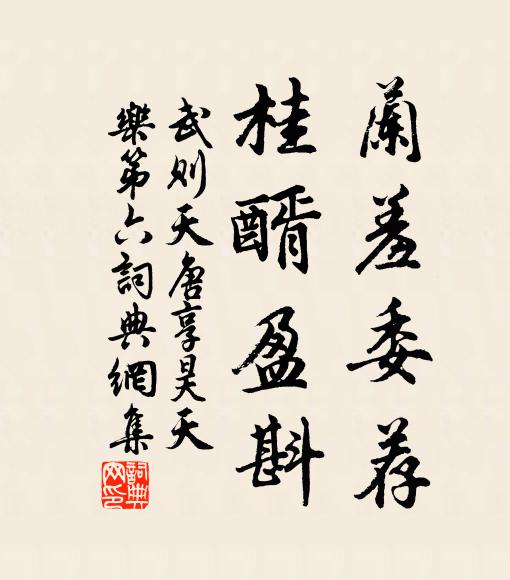 蘭羞委荐
桂醑盈斟
武則天唐享昊天
樂第六詞典網集
詞典网印